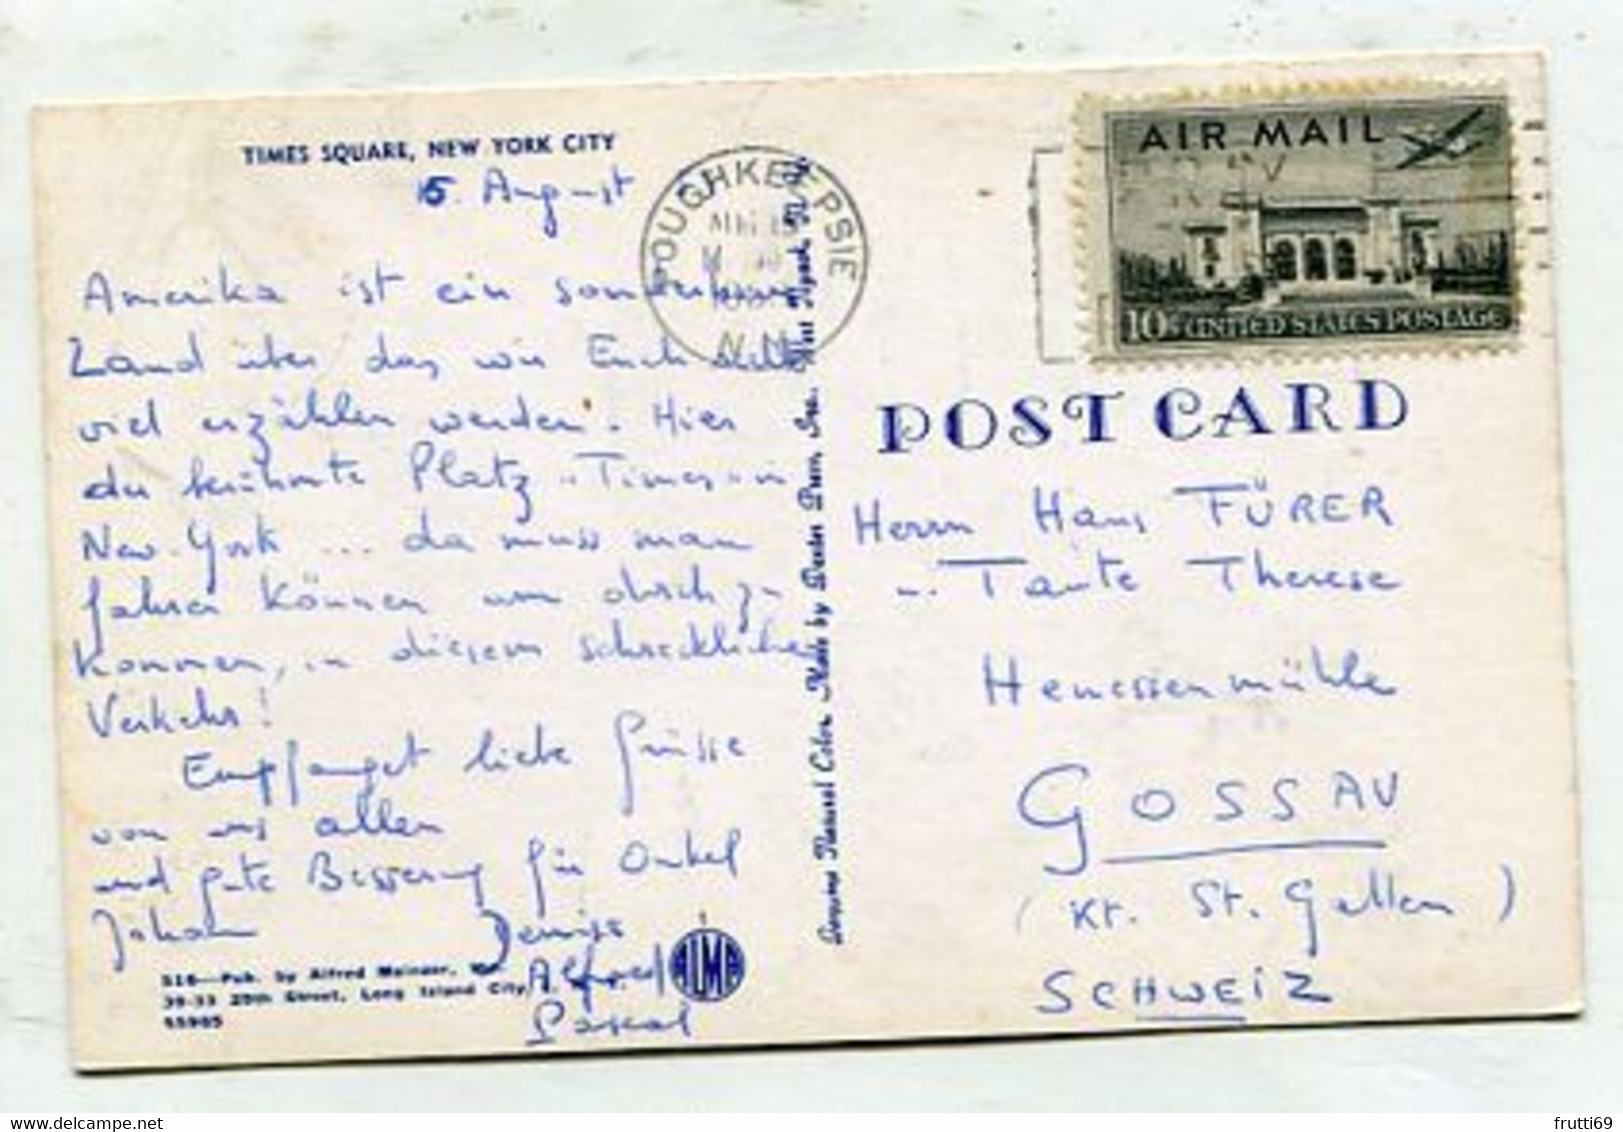 TIMES SQUARE, NEW YORK CITY
15. August
Amerika ist ein sonderbares
Land über das wir Euch
viel erzählen werden. Hier
der berühmte Platz "Times" in
New-York ... da muss man
fahren können um durch zu
kommen, in diesem schrecklichen
Verkehr!
Empfanget liebe Grüsse
von uns allen
und gute Besserung für Onkel
Johann
Denise
Alfred
Pascal
516—Pub. by Alfred Mainzer,
39-33 29th Street, Long Island City,
55905
ALMA
Genuine Natural Color. Made by Dexter Press, Inc. West Nyack, N.Y.
POUGHKEEPSIE
N.Y.
AIR MAIL
10¢ UNITED STATES POSTAGE
POST CARD
Herrn Hans FÜRER
u. Tante Therese
Henessenmühle
GOSSAU
(Kt. St. Gallen)
SCHWEIZ
frutti69
www.delcampe.net